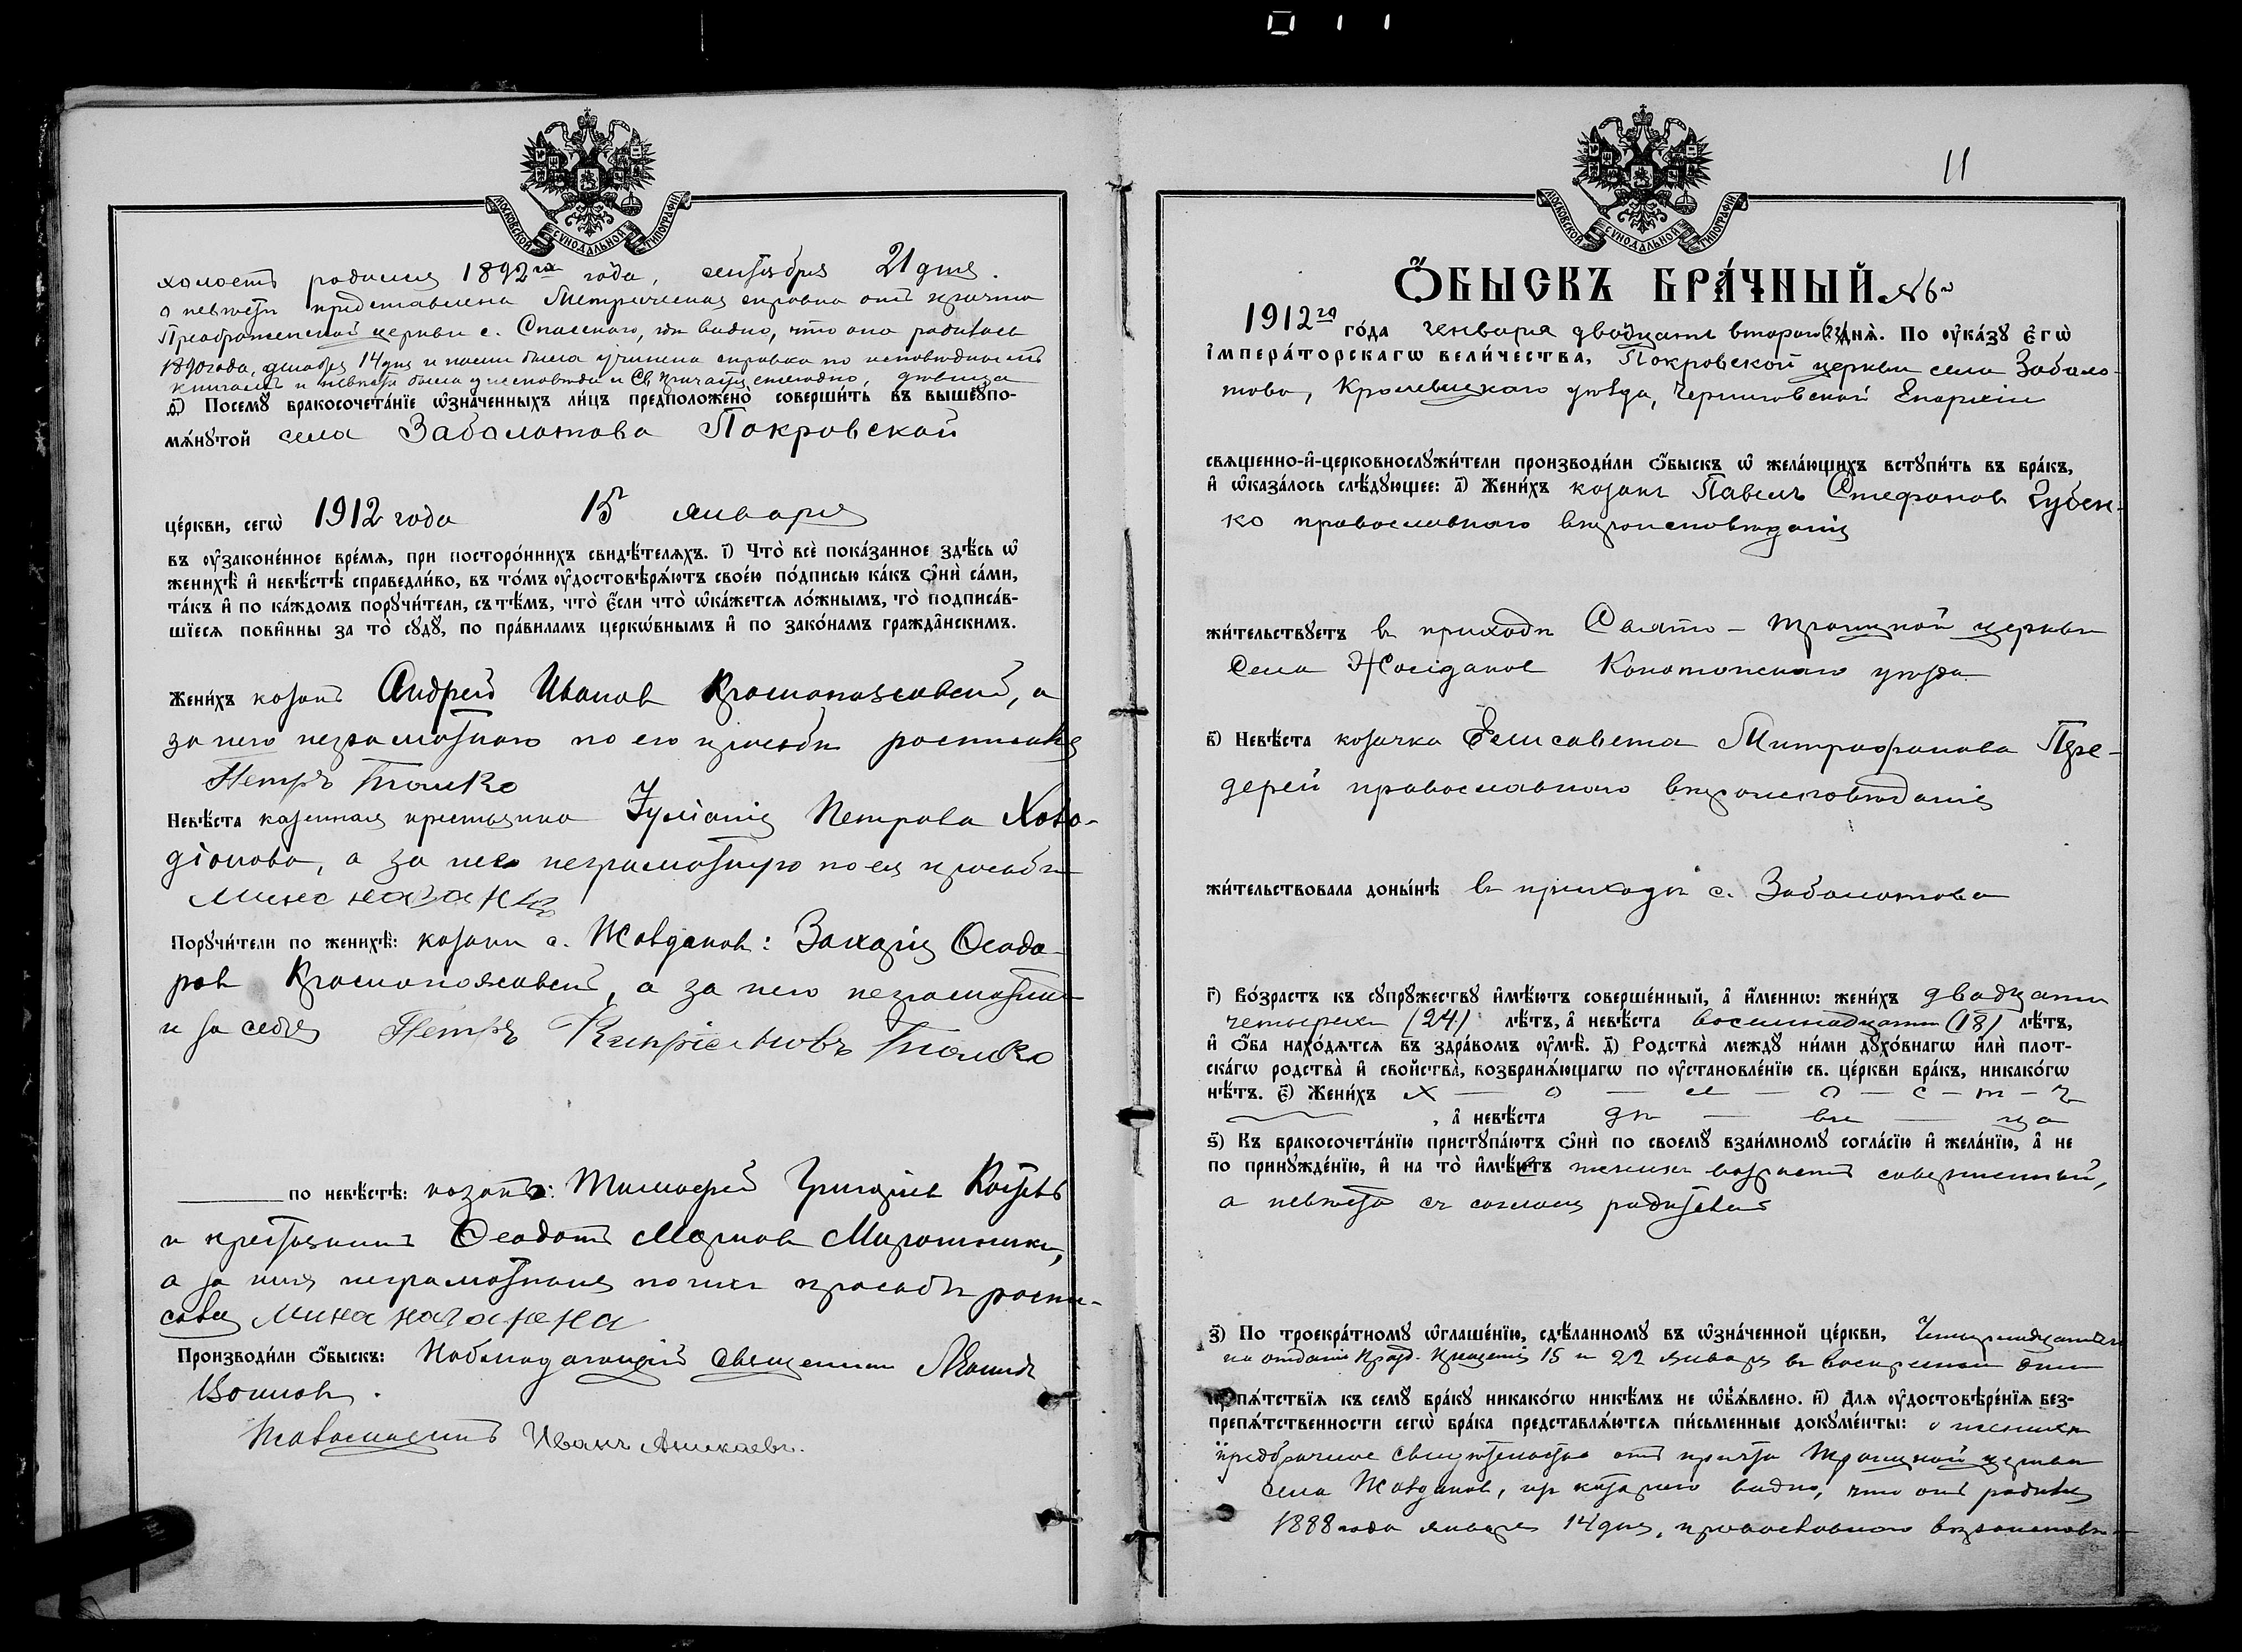 МОСКОВСКОЙ СѴНОДАЛЬНОЙ ТИПОГРАФІИ
холостъ родился 1892го года, сентября 21 дня.
о невесте представлена Метрическая справка отъ причта
Преображенской церкви с. Спасскаго, где видно, что она родилась
1890 года, декабря 14 дня и нами была учинена справка по исповеднымъ
книгамъ и невеста была у исповеди и Св. Причастия ежегодно, девица
ѳ҃) Посемꙋ̀ бракосочета́нїе ѡ҆зна́ченныхъ ли́цъ предположено̀ соверши́ть въ вышеꙋпо-
мѧ́нꙋтой села Заболотова Покровской
це́ркви, сегѡ̀ 1912 года 15 января
въ ᲂу҆законе́нное вре́мѧ, при посторо́ннихъ свидѣ́телѧхъ. і҃) Что̀ всѐ пока́занное здѣ́сь ѡ҆
женихѣ̀ и҆ невѣ́стѣ справедли́во, въ то́мъ ᲂу҆достовѣрѧ́ютъ свое́ю по́дписью ка́къ ѻ҆нѝ са́ми,
та́къ и҆ по ка́ждомъ порꙋчи́тели, съ тѣ́мъ, что̀ є҆́сли что̀ ѡ҆ка́жетсѧ ло́жнымъ, то̀ подписа́в-
шїесѧ пови́нны за то̀ сꙋдꙋ̀, по пра́виламъ церкѡ́внымъ и҆ по зако́намъ гражда̑нскимъ.
Жени́хъ козакъ Андрей Иванов Краснопоясовский, а
за него неграмотного по его просьбе росписался
Петръ Томко
Невѣ́ста казенная крестьянка Иулиания Петрова Ховo-
дионова, а за нее неграмотную по ея просьбе
Мина
Порꙋчи́тели по женихѣ̀: козаки с. Жовданов: Захария Феодо-
ров Краснопоясовский, а за него неграмотного
и за себя Петръ Киприяновъ Томко
по невѣ́стѣ: козакъ: Тимофей Григориев Костевъ
и крестьянинъ Феодотъ Марков Мирошник,
а за них неграмотных по их просьбе роспи-
сался Мина
Производи́ли ѻ҆́быскъ: Наблюдающий Священник Леонид
Псаломщикъ Иванъ
11
МОСКОВСКОЙ СѴНОДАЛЬНОЙ ТИПОГРАФІИ
Ѻ҆́БЫСКЪ БРА́ЧНЫЙ №6й
1912го го́да января двадцать второго (22) днѧ̀. По ᲂу҆ка́зꙋ Є҆гѡ̀
і҆мпера́торскагѡ вели́чества, Покровской церкви села Заболо-
това, Кролевецкого уезда, Черниговской Епархии
свѧще́нно-и҆-церковнослꙋжи́тели производи́ли ѻ҆́быскъ ѡ҆ жела́ющихъ встꙋпи́ть въ бра́къ,
и҆ ѡ҆каза́лось слѣ́дꙋющее: а҃) Жени́хъ козакъ Павелъ Стефанов Губен-
ко православного вероисповедания
жи́тельствꙋетъ в приходе Свято-Троицкой церкви
села Жовданов Конотопского уезда
в҃) Невѣ́ста козачка Елисавета Митрофанова Пере-
дерей православного вероисповедания
жи́тельствовала доны́нѣ в приходе с. Заболотова
г҃) Во́зрастъ къ сꙋпрꙋ́жествꙋ и҆мѣ́ютъ соверше́нный, а҆ и҆́меннѡ: жени́хъ двадцати
четырехъ (24) лѣ́тъ, а҆ невѣ́ста восемнадцати (18) лѣ́тъ,
и҆ ѻ҆́ба нахо́дѧтсѧ въ здра́вомъ ᲂу҆мѣ̀. д҃) Родства̀ междꙋ̀ ни́ми дꙋхо́внагѡ и҆лѝ плот-
ска́гѡ родства̀ и҆ свойства̀, возбранѧ́ющагѡ по ᲂу҆становле́нїю св. це́ркви бра́къ, никако́гѡ
нѣ́тъ. є҃) Жени́хъ х — о — л — о — с — т — ъ
, а҆ невѣ́ста де — ви — ца
ѕ҃) Къ бракосочета́нїю пристꙋпа́ютъ ѻ҆нѝ по своемꙋ̀ взаи́мномꙋ согла́сїю и҆ жела́нїю, а҆ не
по принꙋжде́нїю, и҆ на то̀ и҆мѣ́ютъ жених возрастъ совершенный,
а невеста съ согласия родителей
з҃) По троекра́тномꙋ ѡ҆глаше́нїю, сдѣ́ланномꙋ въ ѡ҆зна́ченной це́ркви, Четырнадцатого
на отдание Празд. Крещения 15 и 22 января в воскресные дни
препѧ́тствїѧ къ семꙋ̀ бра́кꙋ никако́гѡ никѣ́мъ не ѡ҆б̾ѧ́влено. и҃) Длѧ ᲂу҆достовѣре́нїѧ без-
препѧ́тственности сегѡ̀ бра́ка представлѧ́ютсѧ пи́сьменные докꙋме́нты: о женихе
предбрачное свидетельство отъ причта Троицкой церкви
села Жовданов, из которого видно, что онъ родился
1888 года января 14 дня, православного вероисповe-